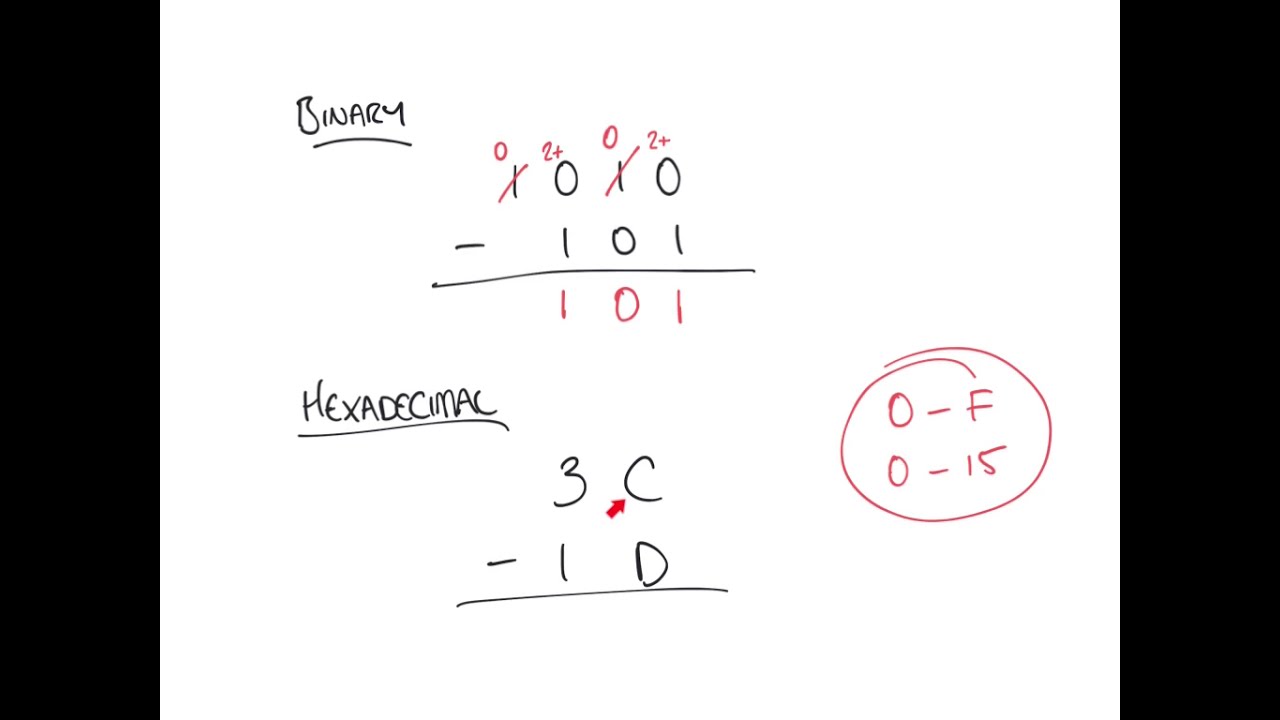 BINARY
0 2+ 0 2+
1 0 1 0
- 1 0 1
1 0 1
HEXADECIMAL
0 - F
0 - 15
3 C
- 1 D